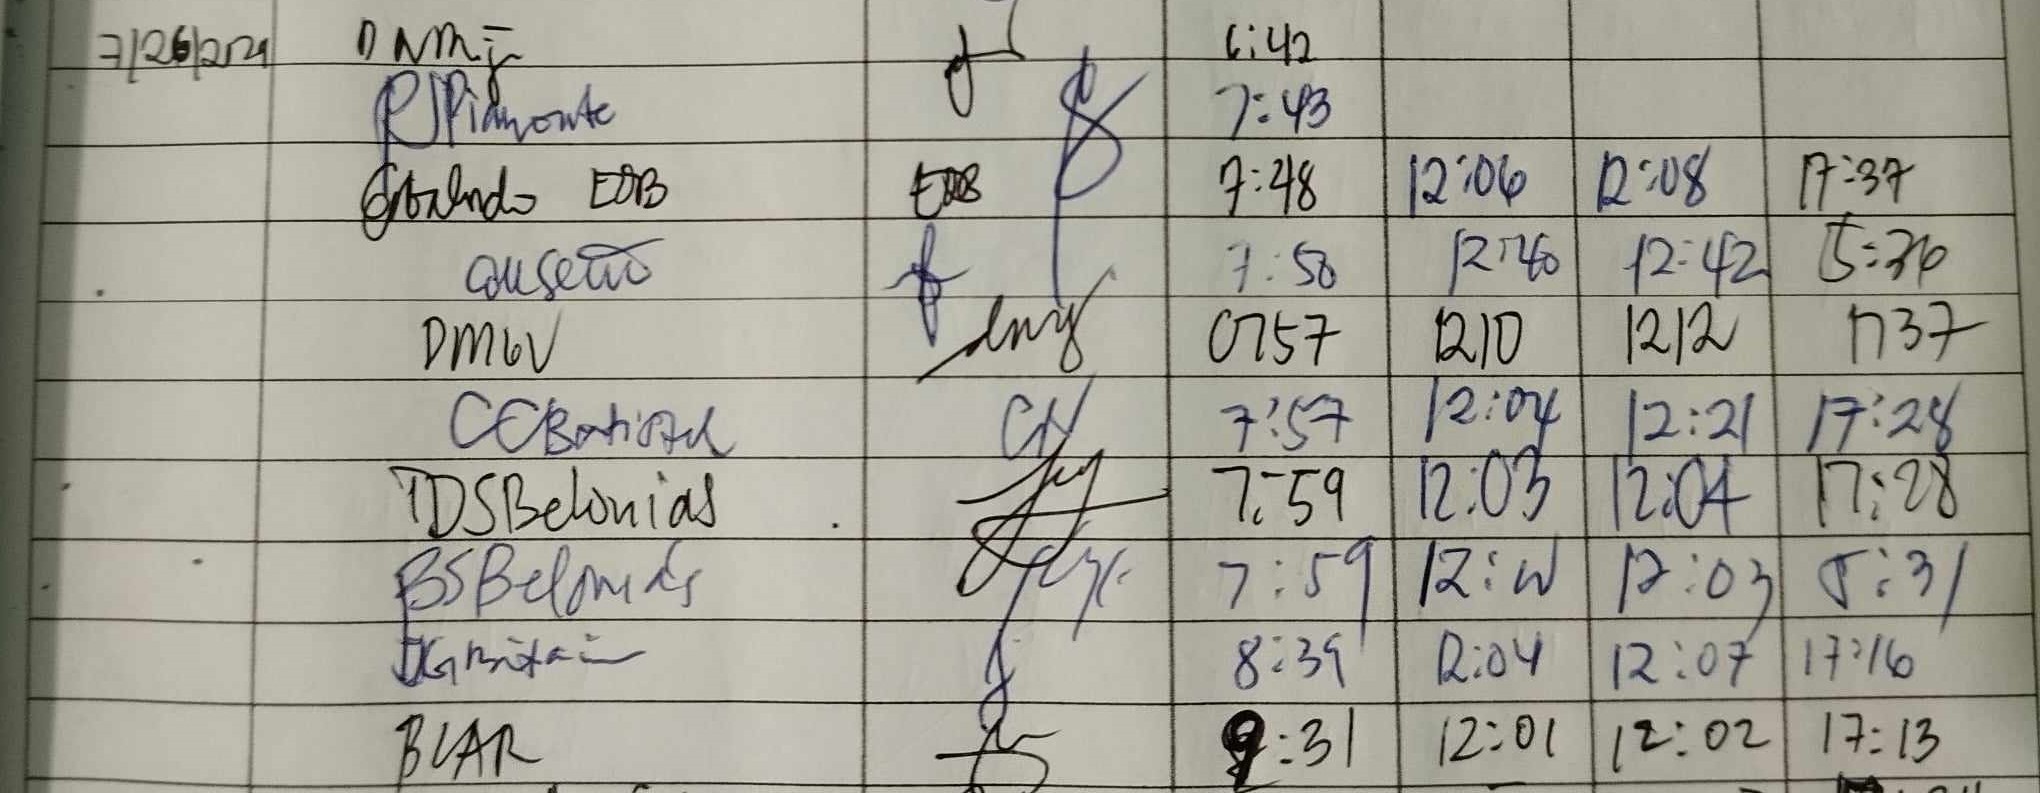 7/26/2024 DNMJ 6:42
RJPiamonte 7:43
EOB EOB 7:48 12:06 12:08 17:37
7:50 12:40 12:42 5:36
DMGV 0757 1210 1212 1737
CEBautista 7:57 12:04 12:21 17:28
TDSBelonias 7:59 12:03 12:04 17:28
BSBelonias 7:59 12:03 5:31
8:39 12:04 12:07 17:16
BLAR 9:31 12:01 12:02 17:13